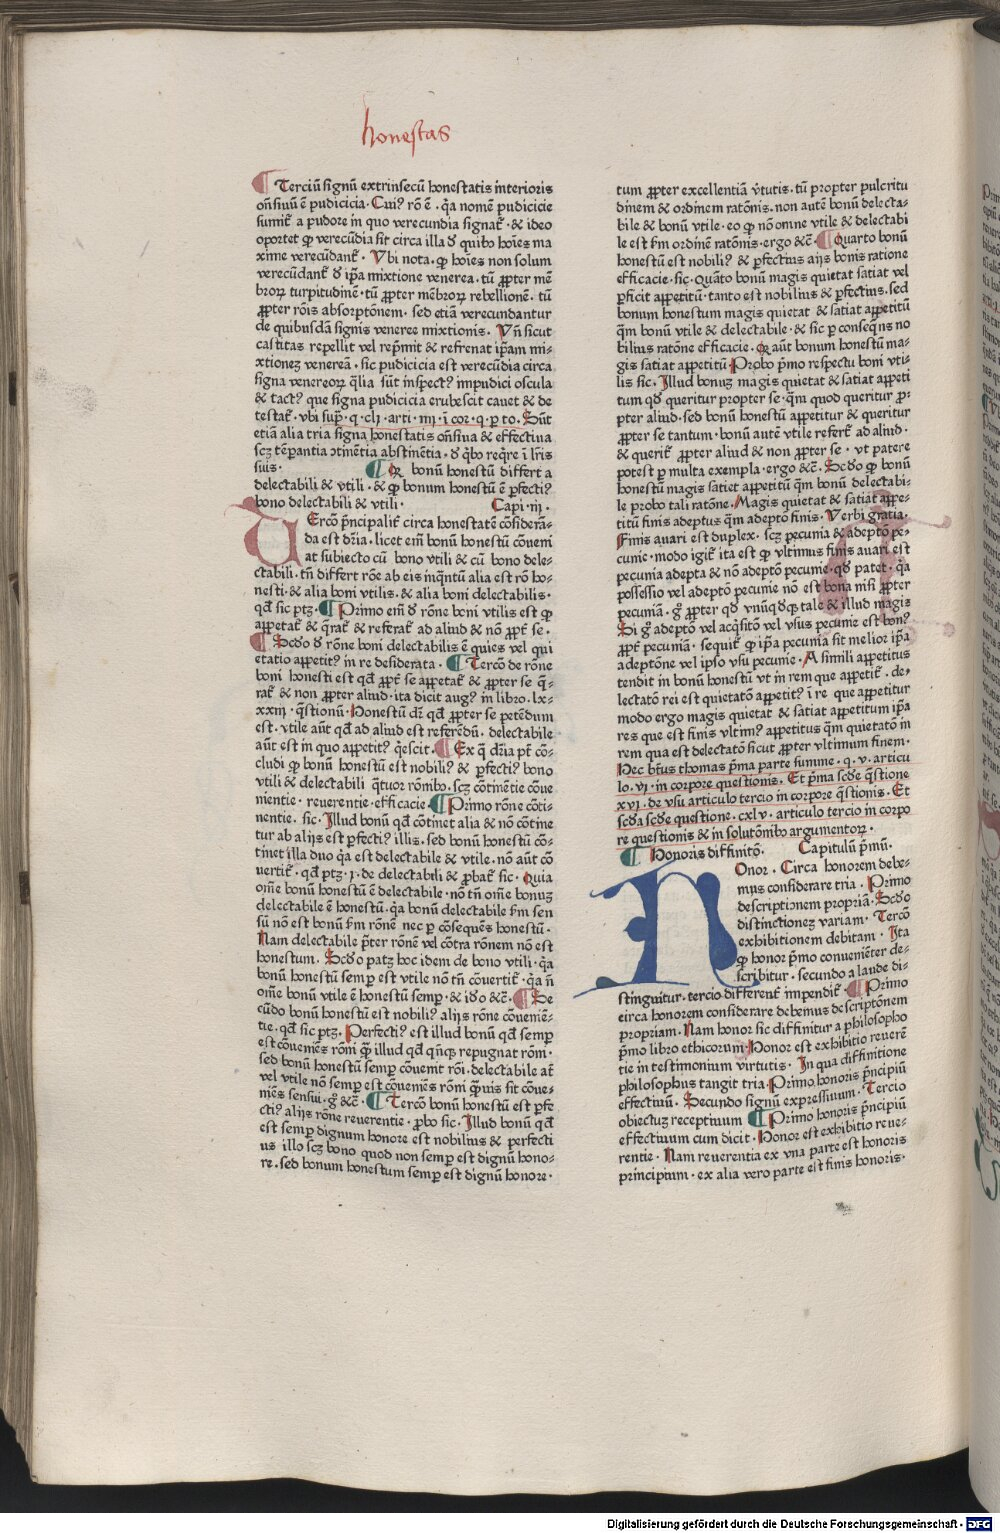 honestas
¶ Terciū signū extrinsecū honestatis interioris
oñsiuū ē pudicicia. Cuiꝰ rō ē. q̄a nomē pudicicie
sumit᷑ a pudore in quo verecundia signat᷑. & ideo
oportet ꝙ verecūdia sit circa illa d̄ quibꝰ hoīes ma
xime verecūdant᷑. Vbi nota. ꝙ hoīes non solum
verecūdant᷑ d̄ ip̄a mixtione venerea. tū ꝓpter mē
broꝝ turpitudinē. tū ꝓpter mēbroꝝ rebellionē. tū
ꝓpter rōis absorptōnem. sed etiā verecundantur
de quibusdā signis veneree mixtionis. Vñ sicut
castitas repellit vel rep̄mit & refrenat ip̄am mi-
xtionez venereā. sic pudicicia est verecūdia circa
signa venereoꝝ q̄lia sūt inspectꝰ impudici oscula
& tactꝰ que signa pudicicia erubescit cauet & de
testat᷑. vbi sup̄. q. clj. arti. iiij. ī cor. q. p to. Sūt
etiā alia tria signa honestatis oñsiua & effectiua
scꝫ tēpantia ↄtinētia abstinētia. d̄ q̄bꝰ req̄re ī lr̄is
suis. ¶ Q bonū honestū differt a
delectabili & vtili. & ꝙ bonum honestū ē ꝑfectiꝰ
bono delectabili & vtili. Capi. iij.
UErcō p̄ncipalit᷑ circa honestatē cōsiderā-
da est dr̄ia. licet em̄ bonū honestū cōueni
at subiecto cū bono vtili & cū bono dele-
ctabili. tñ differt rōe ab eis inq̄ntū alia est rō ho-
nesti. & alia boni vtilis. & alia boni delectabilis.
qd̄ sic ptꝫ. ¶ Primo em̄ d̄ rōne boni vtilis est ꝙ
appetat᷑ & q̄rat᷑ & referat᷑ ad aliud & nō ꝓpt᷑ se.
¶ Scd̄o d̄ rōne boni delectabilis ē quies vel qui
etatio appetitꝰ in re desiderata. ¶ Tercō de rōne
boni honesti est qd̄ ꝓpt᷑ se appetat᷑ & ꝓpter se q̄-
rat᷑ & non ꝓpter aliud. ita dicit augꝰ in libro. lx-
xxiij. q̄stionū. Honestū dr̄ qd̄ ꝓpter se petēdum
est. vtile aūt qd̄ ad aliud est referēdū. delectabile
aūt est in quo appetitꝰ q̄escit. ¶ Ex q̄ dr̄ia pt᷑ cō-
cludi ꝙ bonū honestū est nobiliꝰ & ꝑfectiꝰ bono
vtili & delectabili q̄tuor rōnibꝰ. scꝫ cōtinētie cōue
nientie. reuerentie. efficacie ¶ Primo rōne cōti-
nentie. sic. Illud bonū qd̄ cōtinet alia & nō cōtine
tur ab alijs est ꝑfectiꝰ illis. sed bonū honestū cō-
tinet illa duo q̄a est delectabile & vtile. nō aūt cō
uertit᷑. qd̄ ptꝫ. ı. de delectabili & ꝓbat᷑ sic. Quia
om̄e bonū honestū ē delectabile. nō tñ om̄e bonuꝫ
delectabile ē honestū. q̄a bonū delectabile s̄m sen
sū nō est bonū s̄m rōnē nec p cōsequēs honestū.
Nam delectabile p̄ter rōnē vel cōtra rōnem nō est
honestum. Scd̄o patꝫ hoc idem de bono vtili. q̄a
bonū honestū semꝑ est vtile nō tñ cōuertit᷑. q̄a ñ
om̄e bonū vtile ē honestū semꝑ. & iō &c̄. ¶ Se
cūdo bonū honestū est nobiliꝰ alijs rōne cōueniē-
tie. qd̄ sic ptꝫ. Perfectiꝰ est illud bonū qd̄ semꝑ
est cōueniēs rōni q̄ illud qd̄ qñqꝫ repugnat rōni.
sed bonū honestū semꝑ cōuenit rōi. delectabile at᷑
vel vtile nō semꝑ est cōueniēs rōni q̄uis sit cōue-
niēs sensui. gͦ &c̄. ¶ Tercō bonū honestū est ꝑfe
ctiꝰ alijs rōne reuerentie. ꝓbo sic. Illud bonū qd̄
est semꝑ dignum honore est nobilius & perfecti
us illo scꝫ bono quod non semꝑ est dignū hono-
re. sed bonum honestum semꝑ est dignū honore.
tum ꝓpter excellentiā v̄tutis. tū propter pulcritu
dinem & ordinem ratōnis. non autē bonū delecta-
bile & bonū vtile. eo ꝙ nō omne vtile & delectabi
le est s̄m ordinē ratōnis. ergo &c̄. ¶ Quarto bonū
honestū est nobiliꝰ & ꝑfectius alijs bonis ratione
efficacie. sic. Quāto bonū magis quietat satiat vel
ꝑficit appetitū. tanto est nobilius & ꝑfectius. sed
bonum honestum magis quietat & satiat appetitū
q̄m bonū vtile & delectabile. & sic p conseq̄ns no
bilius ratōne efficacie. Q aūt bonum honestū ma-
gis satiat appetitū Probo p̄mo respectu boni vti-
lis sic. Illud bonuꝫ magis quietat & satiat appeti
tum qd̄ queritur propter se. q̄m quod queritur ꝓ-
pter aliud. sed bonū honestū appetitur & queritur
ꝓpter se tantum. bonū autē vtile refert᷑ ad aliud.
& querit᷑ ꝓpter aliud & non ꝓpter se. vt patere
potest p multa exempla. ergo &c̄. Scd̄o ꝙ bonū
honestū magis satiet appetitū q̄m bonū delectabi-
le probo tali ratōne. Magis quietat & satiat appe-
titū finis adeptus q̄m adeptō finis. Verbi gratia.
Finis auari est duplex. scꝫ pecunia & adeptō pe-
cunie. modo igit᷑ ita est ꝙ vltimus finis auari est
pecunia adepta & nō adeptō pecunie. qd̄ patet. q̄a
possessio vel adeptō pecunie nō est bona nisi ꝓpter
pecuniā. gͦ ꝓpter qd̄ vnūqd̄qꝫ tale & illud magis
Si gͦ adeptō vel acq̄sitō vel vsus pecunie est bonꝰ
ꝓpt᷑ pecuniā. sequit᷑ ꝙ ip̄a pecunia sit melior ip̄a
adeptōne vel ipso vsu pecunie. A simili appetitus
tendit in bonū honestū vt in rem que appetit᷑. de-
lectatō rei est quietatō appetitꝰ ī re que appetitur
modo ergo magis quietat & satiat appetitum ip̄a
res que est finis vltimꝰ appetitus q̄m quietatō in
rem qua est delectatō sicut ꝓpter vltimum finem.
Hec bt̄us thomas p̄ma parte summe. q. v. articu
lo. vi. in corpore questionis. Et p̄ma scd̄e q̄stione
xvi. de vsu articulo tercio in corpore q̄stionis. Et
scd̄a scd̄e questione. cxlv. articulo tercio in corpo
re questionis & in solutōnibꝰ argumentoꝝ.
¶ Honoris diffinitō. Capitulū p̄mū.
HOnor. Circa honorem debe-
mus considerare tria. Primo
descriptionem propriā. Scd̄o
distinctionez variam. Tercō
exhibitionem debitam. Ita
ꝙ honor p̄mo conueniēter de-
scribitur. secundo a laude di-
stinguitur. tercio different᷑ impendit᷑. ¶ Primo
circa honorem considerare debemus descriptōnem
propriam. Nam honor sic diffinitur a philosopho
p̄mo libro ethicorum. Honor est exhibitio reuerē
tie in testimonium virtutis. In qua diffinitione
philosophus tangit tria. Primo honoris p̄ncipiū
effectiuū. Secundo signū expressiuum. Tercio
obiectuꝫ receptiuum ¶ Primo honoris p̄ncipiū
effectiuum cum dicit. Honor est exhibitio reue-
rentie. Nam reuerentia ex vna parte est honoris
principium. ex alia vero parte est finis honoris.
Digitalisierung gefördert durch die Deutsche Forschungsgemeinschaft - DFG